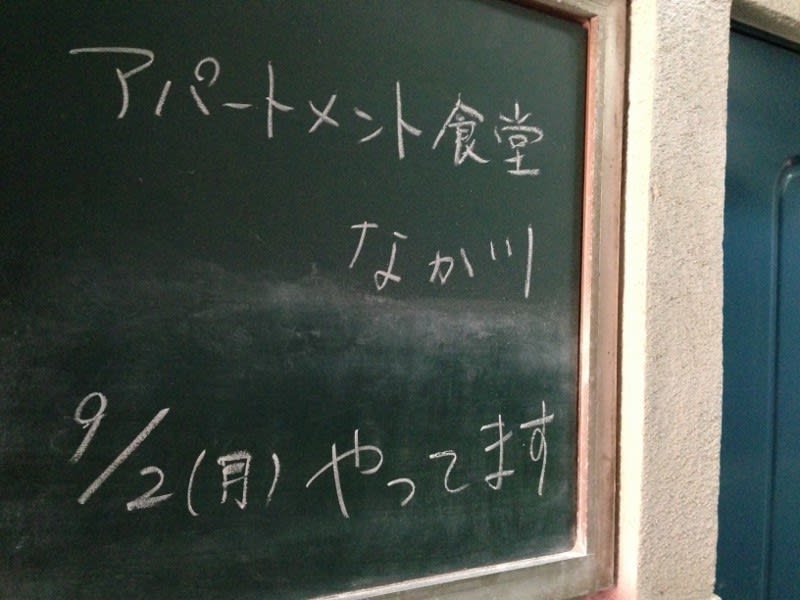 アパートメント食堂
なか川
9/2(月)やってます